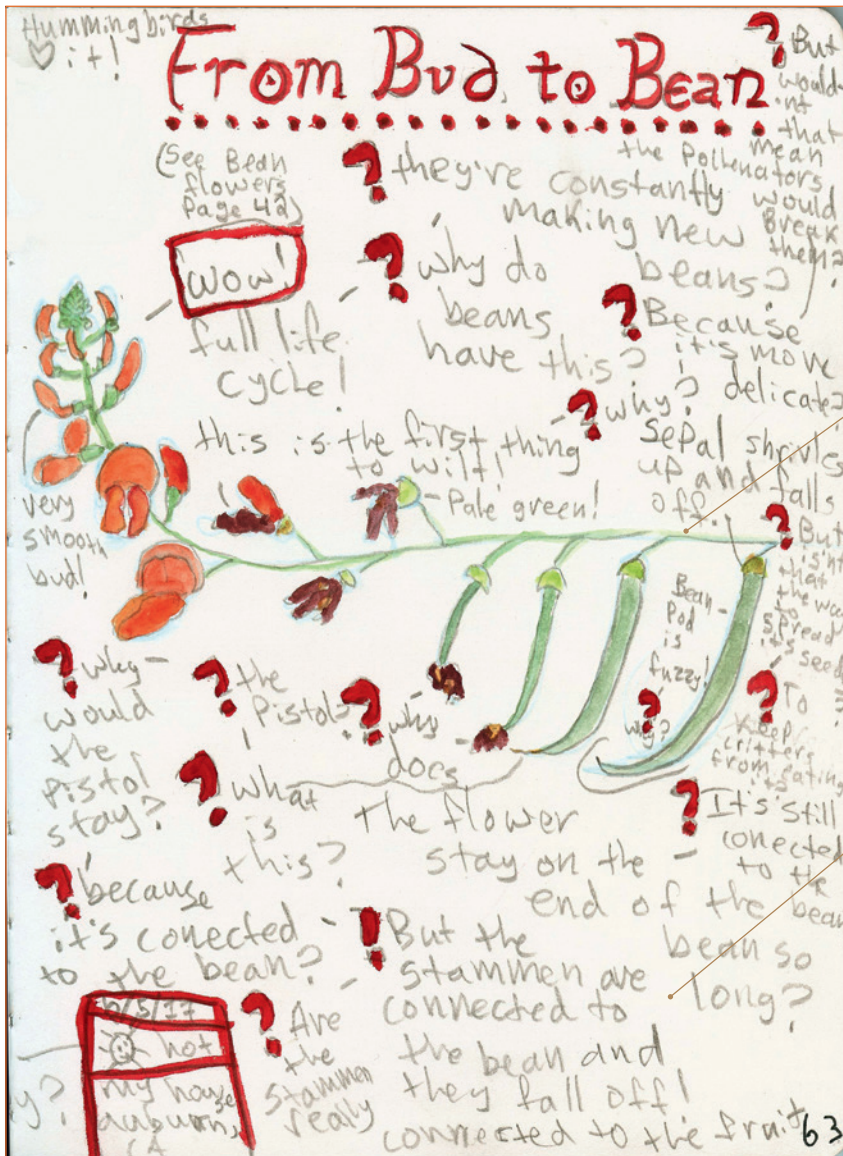 Hummingbirds
♡ it!
From Bud to Bean
? But
would-
nt
that
mean
the Pollenators
would
Break
them?
(See Bean
flowers
Page 42)
? they're constantly
making new
beans?
Wow!
full life
cycle!
? why do
beans
have this?
? Because
it's more
delicate?
? why?
this is the first thing
to wilt!
Pale green!
Sepal shrivles
up and falls
off.
very
smooth
bud!
? But
isn't
that
the way
to
spread
it's seed
?
Bean
Pod
is
fuzzy!
? why?
? To
keep
critters
from eating
its
? why
would
the
Pistol
stay?
? the
Pistol?
? what
is
this?
? why
does
the flower
stay on the
end of the
bean so
long?
? It's still
conected
to the
bean
? because
it's conected
to the bean?
! But the
stammen are
connected to
the bean and
they fall off!
? Are
the
stammen
really
connected to the fruit
6/5/17
hot
my house
auburn,
CA
y?
63